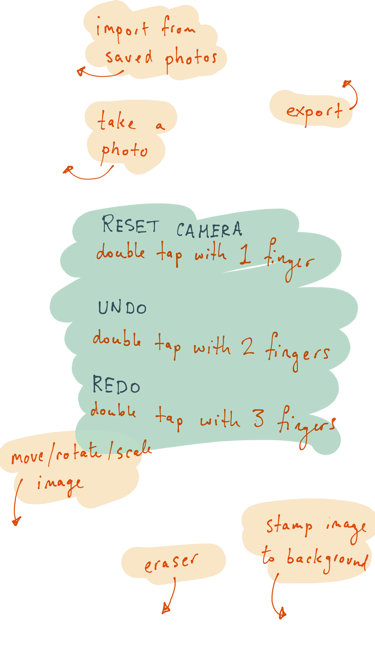 import from
saved photos
take a
photo
export
RESET CAMERA
double tap with 1 finger
UNDO
double tap with 2 fingers
REDO
double tap with 3 fingers
move/rotate/scale
image
eraser
stamp image
to background